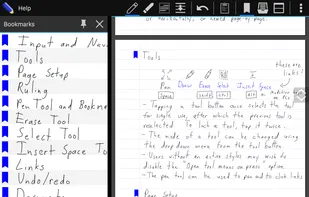 Help
Bookmarks
Input and Nav
Tools
Page Setup
Ruling
Pen Tool and Bookm
Erase Tool
Select Tool
Insert Space To
Links
Undo/redo
Tools
these are
links!
Pan Draw Erase Select Insert Space
Space Shift Ctrl Alt
- Tapping a tool button once selects the tool
for single use, after which the previous tool is
reselected. To lock a tool, tap it twice.
- The mode of a tool can be changed using
the drop down menu from the tool button
- Users without an active stylus may wish to
disable the "Open tool menus on press" option
- The pan tool can be used to pan and to click links
Page Setup